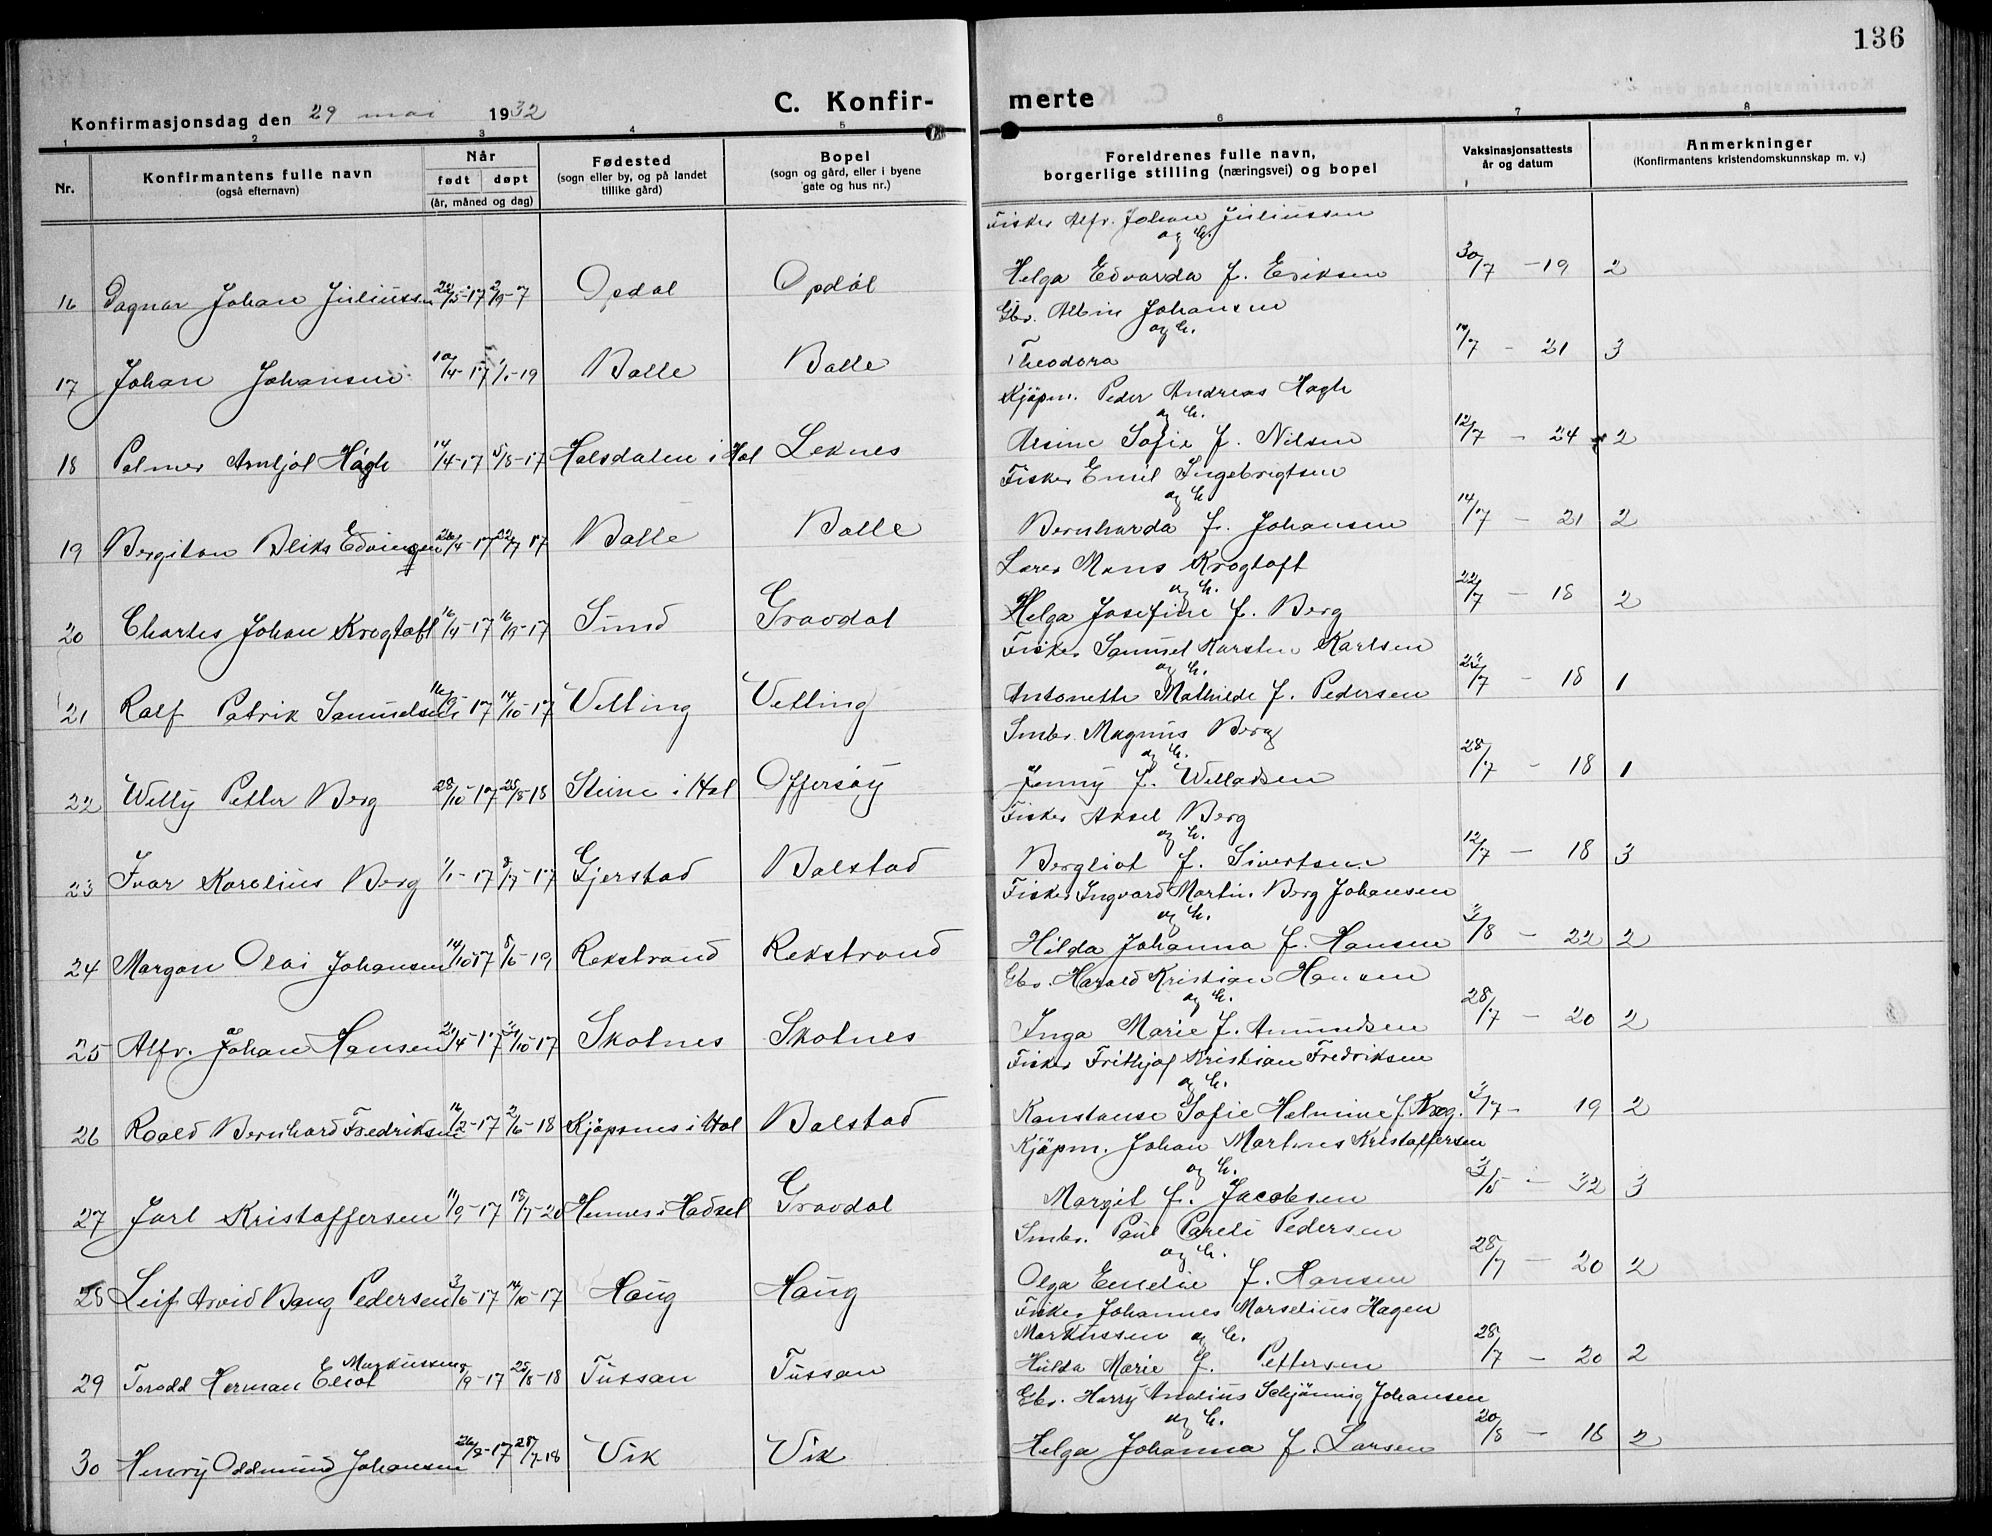 136
Konfirmasjonsdag den 29 mai 1932
C. Konfir- merte
1 2 3 4 5 6 7 8
Nr.
Konfirmantens fulle navn
(også efternavn)
Når
født døpt
(år, måned og dag)
Fødested
(sogn eller by, og på landet
tillike gård)
Bopel
(sogn og gård, eller i byene
gate og hus nr.)
Foreldrenes fulle navn,
borgerlige stilling (næringsvei) og bopel
Vaksinasjonsattests
år og datum
Anmerkninger
(Konfirmantens kristendomskunnskap m. v.)
Fisker Alfr. Johan Juliussen
og h.
16 Dagnar Johan Juliussen 22/5-17 2/9-17 Opdal Opdøl Helga Edvarda f. Eriksen 30/7 - 19 2
Gbr. Albin Johansen
og h.
17 Johan Johansen 10/4-17 1/1-19 Balle Balle Theodora 14/7 - 21 3
Kjøpm. Peder Andreas Hagh
og h.
18 Palmer Arnljot Hagh 14/4-17 5/8-17 Halsdalen i Hol Leknes Arsine Sofie f. Nilsen 12/7 - 24 2
Fisker Emil Ingebrigtsen
og h.
19 Bergiton Bliks Edvinsen 26/4-17 22/7-17 Balle Balle Bernharda f. Johansen 14/7 - 21 2
Lærer Mons Krogtoft
og h.
20 Charles Johan Krogtoft 16/4-17 16/9-17 Sund Gravdal Helga Josefine f. Berg 22/7 - 18 2
Fisker Samuel Karsten Karlsen
og h.
21 Ralf Patrik Samuelsen 16/9-17 14/10-17 Vetting Vetting Antonette Mathilde f. Pedersen 22/7 - 18 1
Smbr. Magnus Berg
og h.
22 Willy Petter Berg 28/10-17 25/8-18 Steine i Hol Offersøy Jenny f. Willadsen 28/7 - 18 1
Fisker Aksel Berg
og h.
23 Ivar Karelius Berg 1/1-17 8/7-17 Gjerstad Balstad Bergliot f. Sivertsen 12/7 - 18 3
Fisker Ingvard Martin Berg Johansen
og h.
24 Margan Olai Johansen 14/10-17 8/6-19 Rekstrand Rekstrand Hilda Johanna f. Hansen 3/8 - 22 2
Gbr. Harald Kristian Hansen
og h.
25 Alfr. Johan Hansen 21/4-17 21/10-17 Skotnes Skotnes Inga Marie f. Amundsen 28/7 - 20 2
Fisker Frithjof Kristian Fredriksen
og h.
26 Roald Bernhard Fredriksen 16/2-17 2/6-18 Kjøpsnes i Hol Balstad Konstanse Sofie Helmine f. Krog. 3/7 - 19 2
Kjøpm. Johan Martines Kristoffersen
og h.
27 Jarl Kristoffersen 11/9-17 18/7-20 Hennes i Hadsel Gravdal Margit f. Jacobsen 3/5 - 32 3
Smbr. Paul Pareli Pedersen
og h.
28 Leif Arvid Bang Pedersen 3/6-17 14/10-17 Haug Haug Olga Emelie f. Hansen 28/7 - 20 2
Fisker Johannes Marselius Hagen
Markussen og h.
29 Torodd Herman Eliot Markussen 8/9-17 25/8-18 Tussan Tussan Hulda Marie f. Pettersen 28/7 - 20 2
Gbr. Harry Analius Schjønnig Johansen
og h.
30 Henry Oddmund Johansen 26/8-17 28/7-18 Vik Vik Helga Johanna f. Larsen 20/8 - 18 2